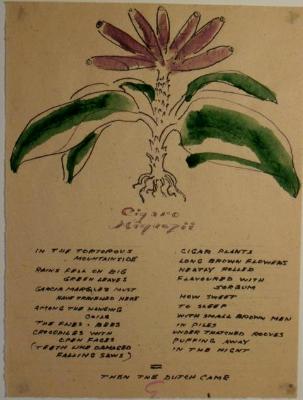 Cigaro
IN THE TORTOPOUS
MOUNTAINSIDE
RAINS FELL ON BIG
GREEN LEAVES
GARCIA MARQUEZ MUST
HAVE TRAVELLED HERE
AMONG THE HANGING
COILS
THE FLIES. BEES
CROCODILES WITH
OPEN FACES
(TEETH LIKE DAMAGED
FALLING SAWS)
CIGAR PLANTS
LONG BROWN FLOWERS
NEATLY ROLLED
FLAVOURED WITH
SORBUM
HOW SWEET
TO SLEEP
WITH SMALL BROWN MEN
IN PILES
UNDER THATCHED ROOVES
PUFFING AWAY
IN THE NIGHT
THEN THE DUTCH CAME